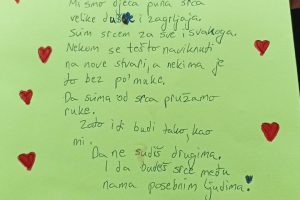 Mi smo djeca puna srca
velike duše i zagrljaja.
Svim srcem za sve i svakoga.
Nekom se teško naviknuti
na nove stvari, a nekima je
to bez po' muke.
Da svima od srca pružamo
ruke.
Zato i ti budi tako, kao
mi.
Da ne sudiš drugima.
I da budeš srce među
nama posebnim ljudima.